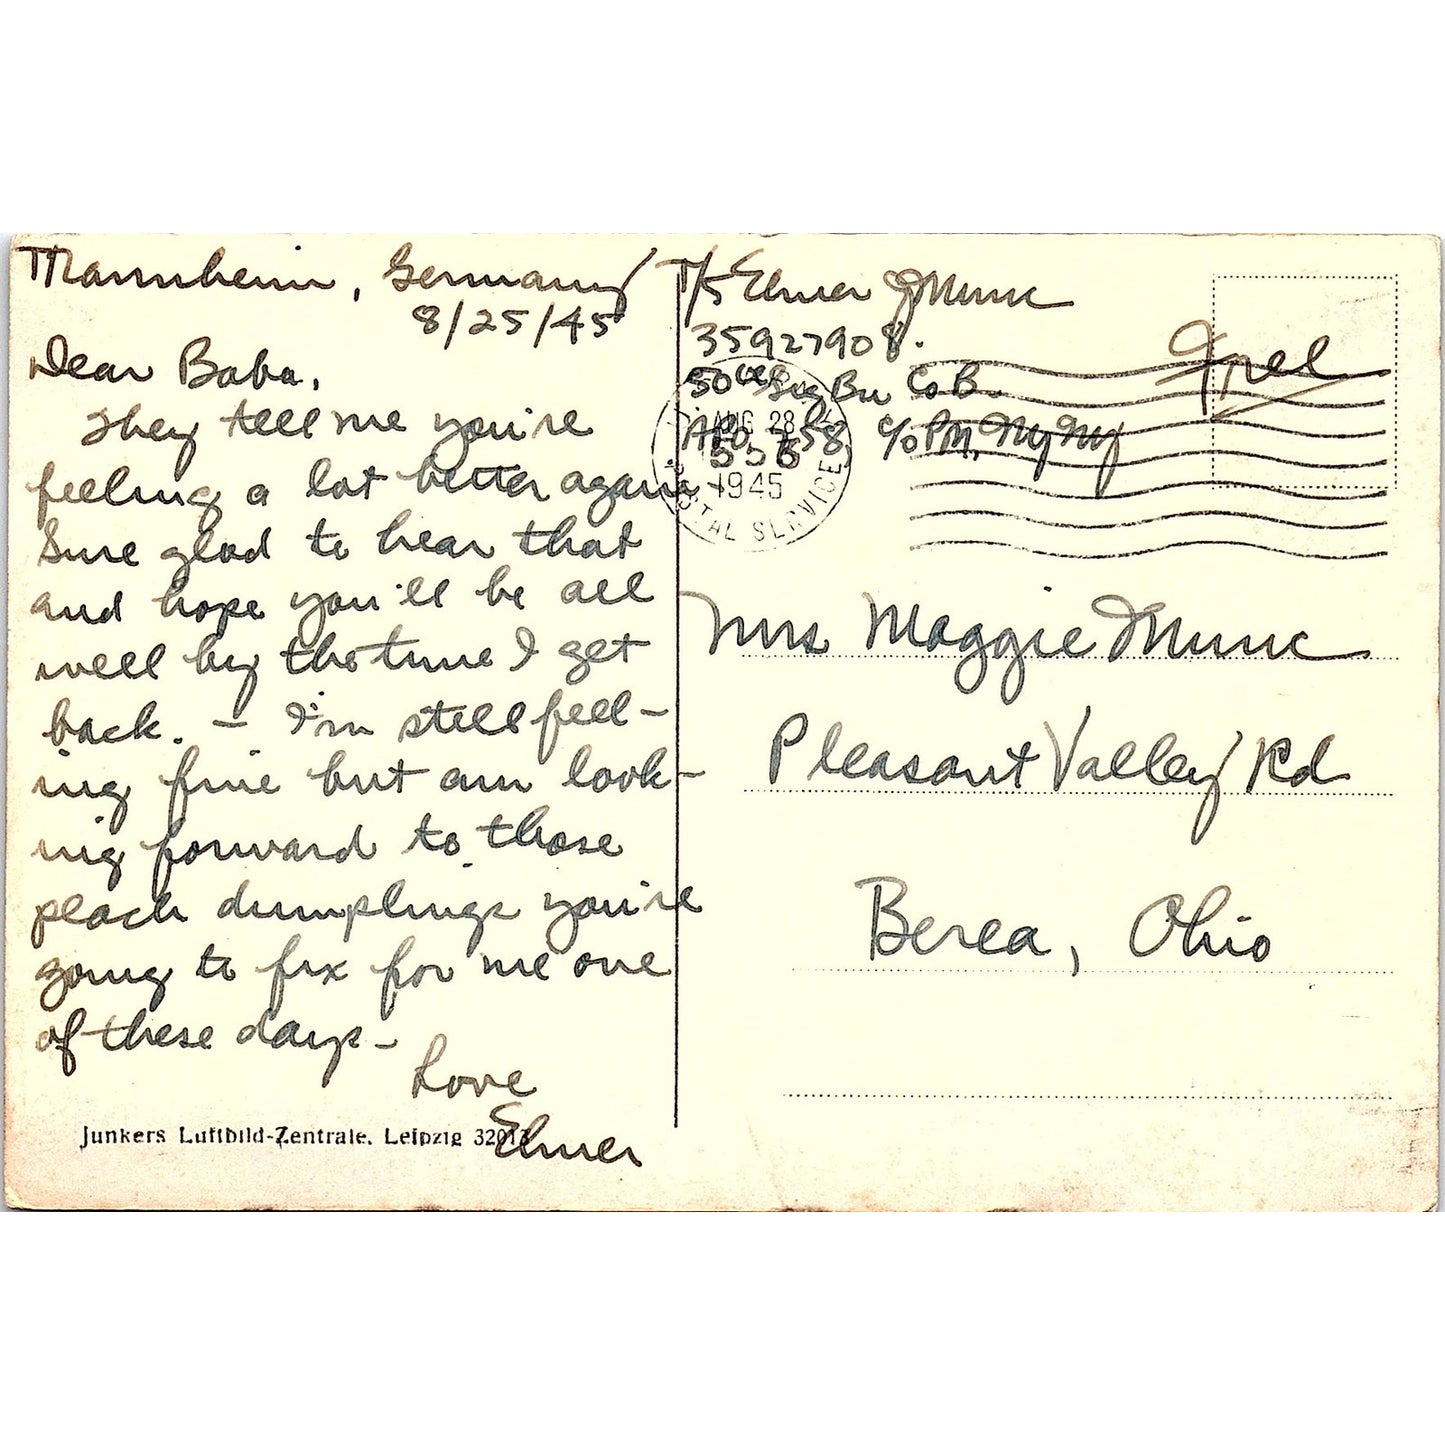 Mannheim, Germany
8/25/45
Dear Baba,
They tell me you're
feeling a lot better again -
Sure glad to hear that
and hope you'll be all
well by the time I get
back. – I'm still feel-
ing fine but am look-
ing forward to those
peach dumplings you're
going to fix for me one
of these days –
Love
Elmer
Junkers Luftbild-Zentrale, Leipzig 32013
T/5 Elmer J Munc
35927908.
Sig Bn Co B.
APO 758 c/o PM, NY NY
Free
AUG 28
1945
POSTAL SERVICE
Mrs Maggie Munc
Pleasant Valley Rd
Berea, Ohio